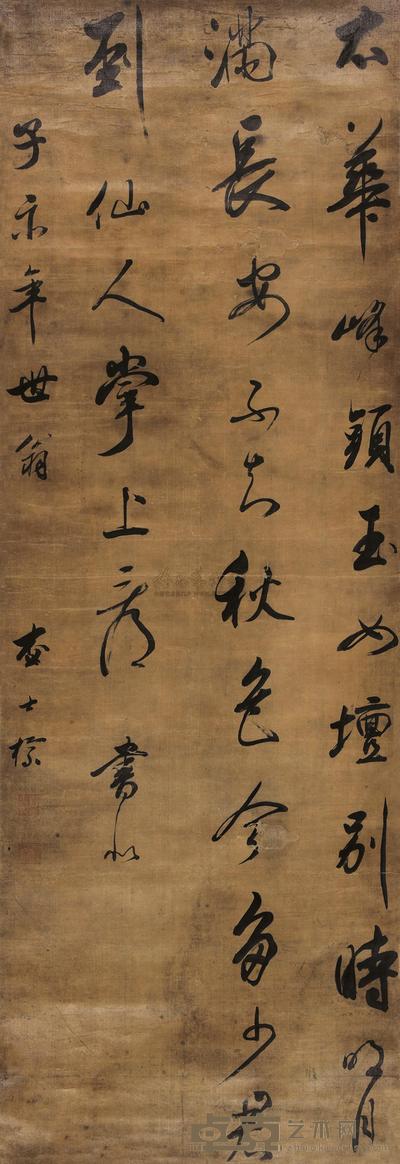 太華峰頭玉女壇別時明月
滿長安不知秋色今多少君
到仙人掌上看 書似
子年世翁 查士標
艺术网